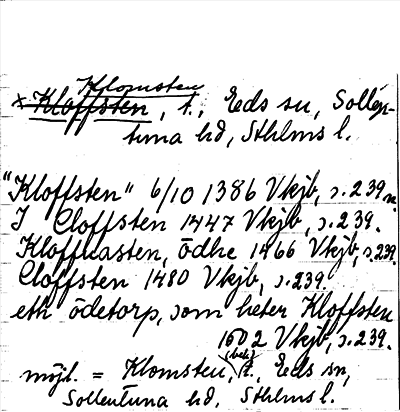 Klomsten
× Kloffsten, t., Eds sn, Sollen-
tuna hd, Sthlms l.
"Kloffsten" 6/10 1386 Vkjb, s. 239 n.
I Cloffsten 1447 Vkjb, s. 239.
Kloffhasten, ödhe 1466 Vkjb, s. 239.
Cloffsten 1480 Vkjb, s. 239.
eth ödetorp, som heter Kloffsten
1602 Vkjb, s. 239.
möjl. = Klomsten, t., Eds sn,
Sollentuna hd, Sthlms l.